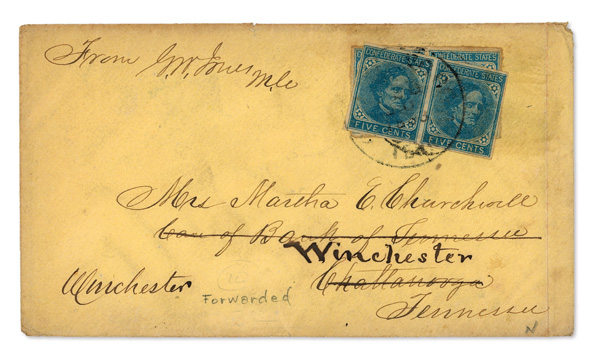 From G. W. Jones
M.C.
CONFEDERATE STATES
CONFEDERATE STATES
FIVE CENTS
FIVE CENTS
TEN
Mrs Martha E. Churchwell
Care of Bank of Tennessee
Winchester
Chattanooga
Winchester
Forwarded
Tennessee
N